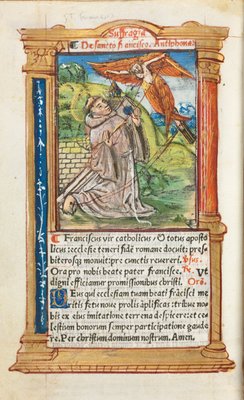 Suffragia
De sancto francisco. Antiphona.
Franciscus vir catholicus / O totus aposto
licus ecclesie teneri fidē romane docuit: pres
biterosq; monuit: pre cunctis reuereri. Vsus.
Ora pro nobis beate pater francisce. Re. Vt
digni efficiamur promissionibus christi. Orō.
Deus qui ecclesiam tuam beati frācisci me
ritis fetu noue prolis āplificas: tribue no
bis ex eius imitatione terrena despicere: et ce
lestium bonorum semper participatione gaude
re. Per christum dominum nostrum. Amen.